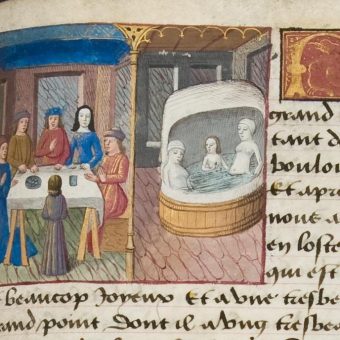 grand
tant de
boulou
Et apre
nous a
en loste
qui est
beaucop Joyeux Et avne tresbe
grand point dont il avng tresbe